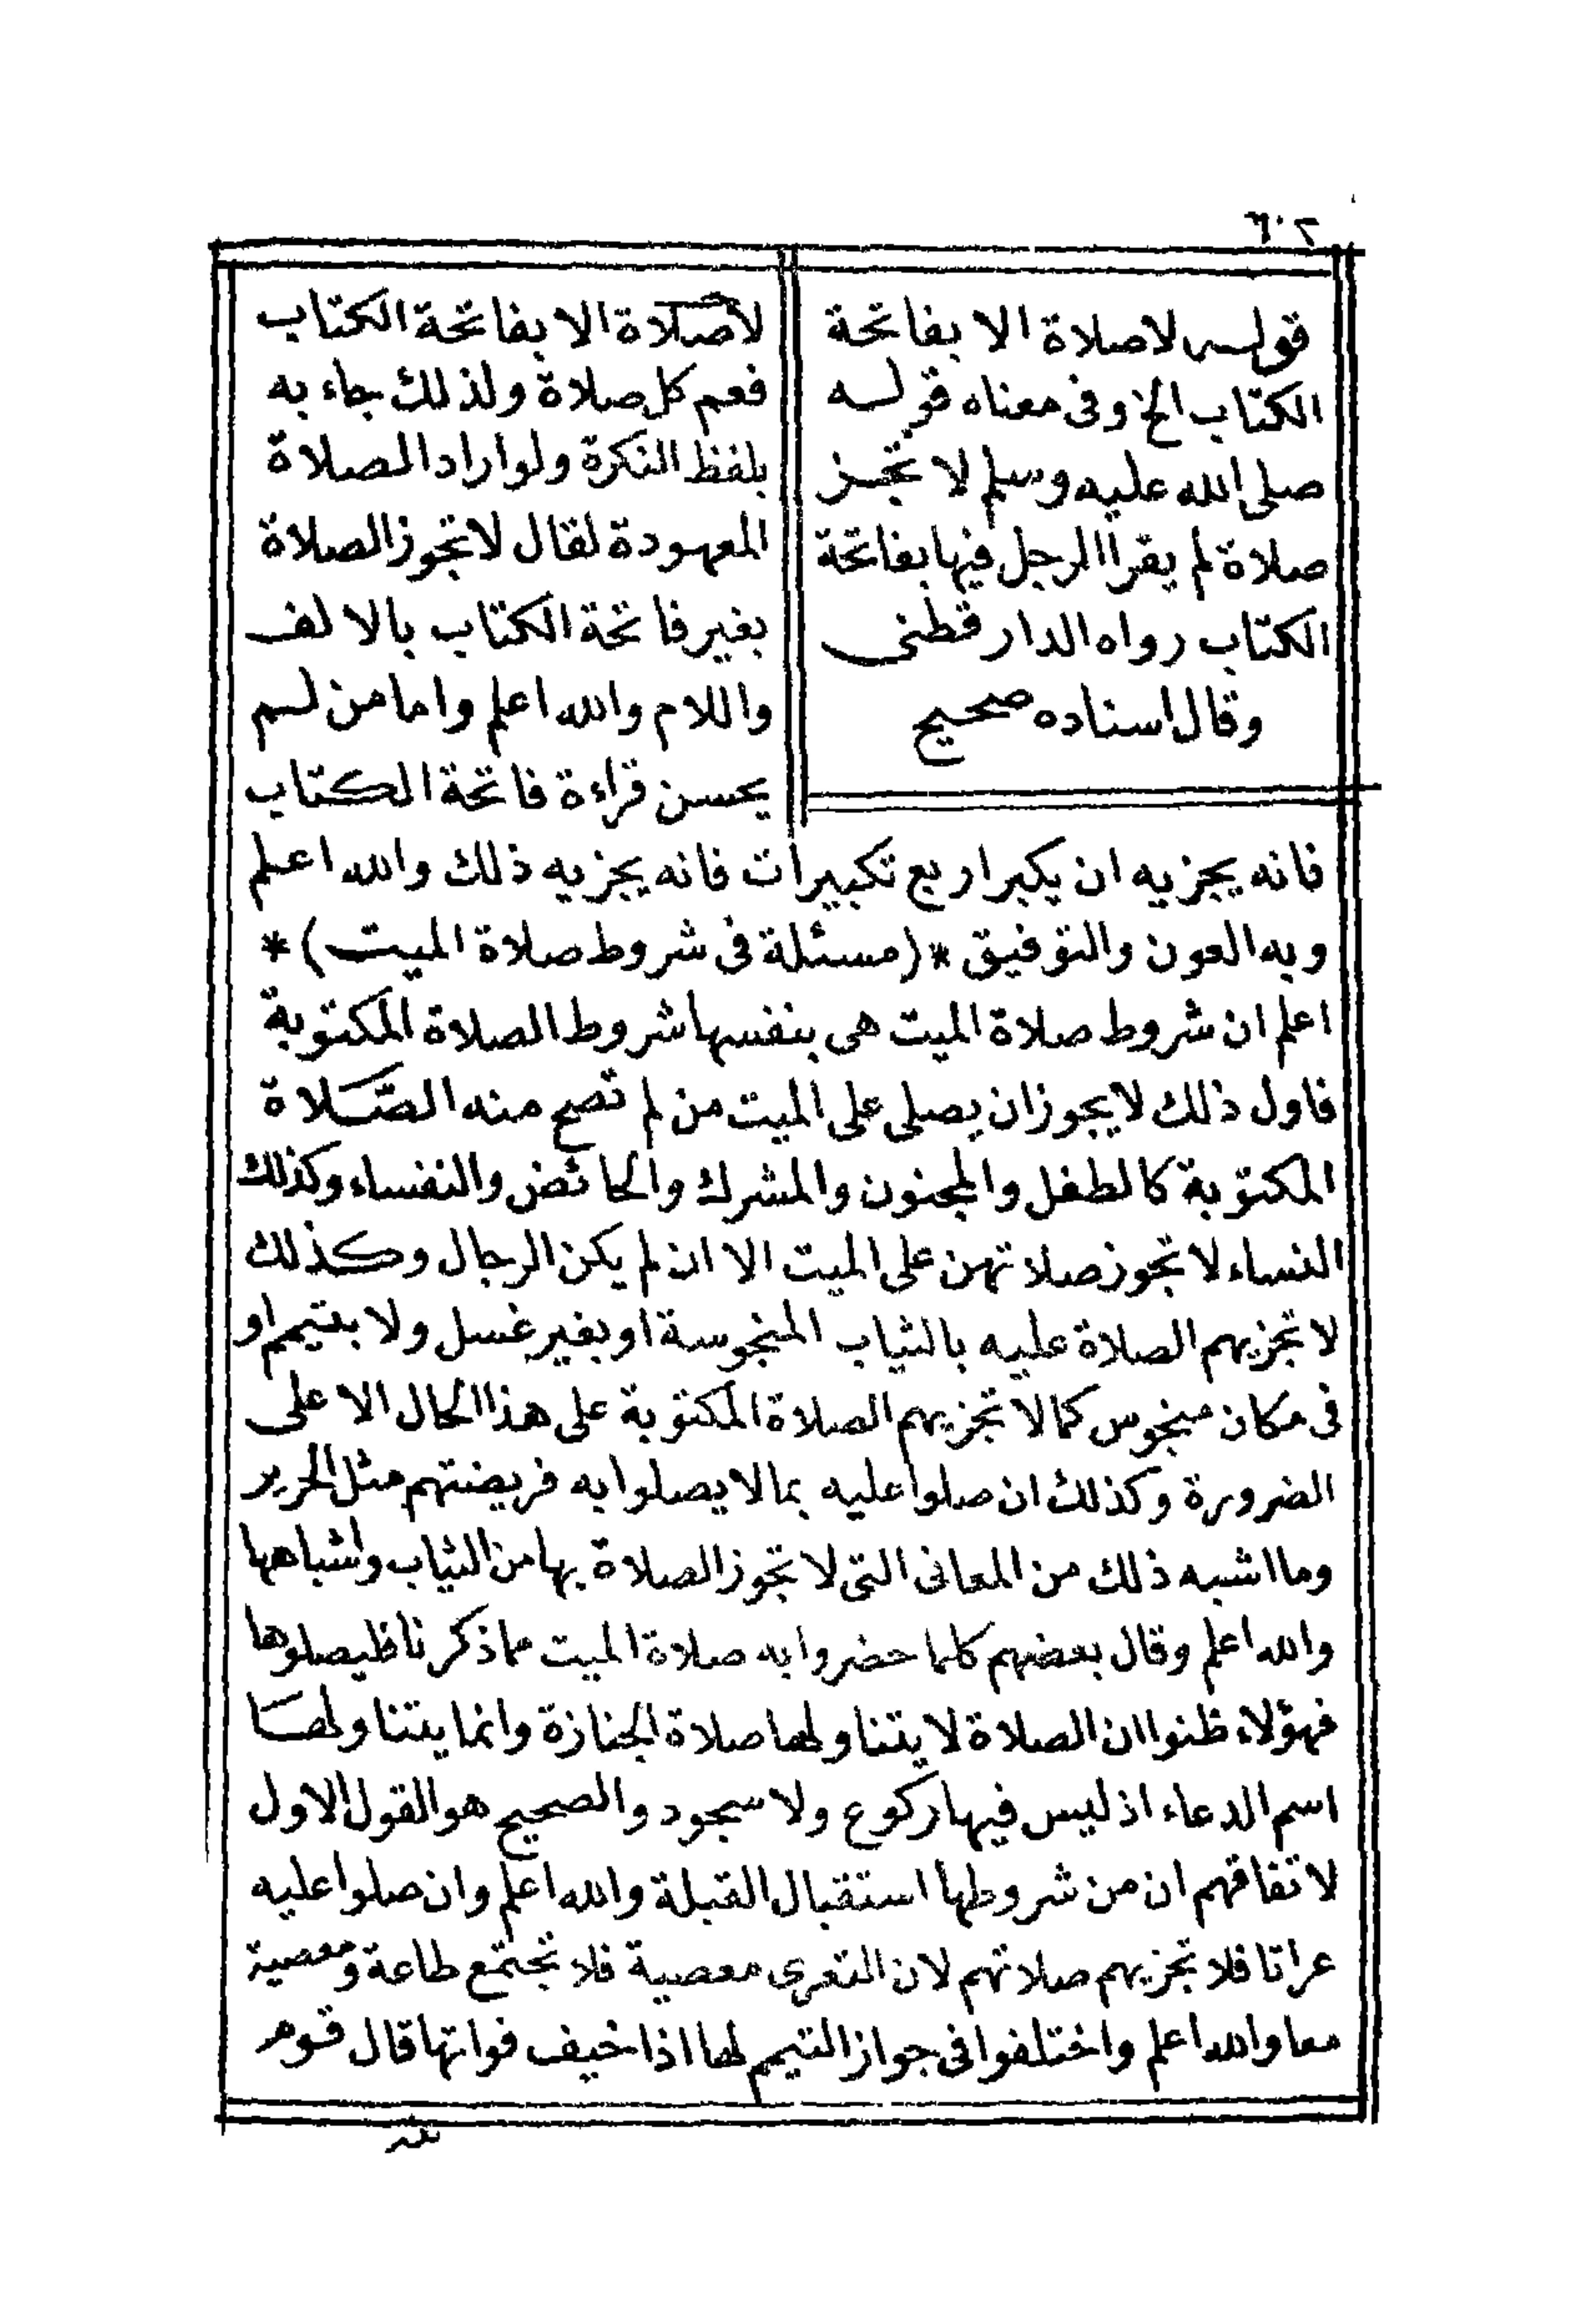 قوله لاصلاة الا بفاتحة
الكتاب الخ وفى معناه قوله
صلى الله عليه وسلم لا تجز
صلاة لم يقرا الرجل فيها بفاتحة
الكتاب رواه الدار قطنى
وقال اسناده صحيح
لاصلاة الا بفاتحة الكتاب
فعم كل صلاة ولذلك جاء به
بلفظ النكرة ولو اراد الصلاة
المعهودة لقال لا تجوز الصلاة
بغير فاتحة الكتاب بالالف
واللام والله اعلم واما من لم
يحسن قراءة فاتحة الكتاب
فانه يجزيه ان يكبر اربع تكبيرات فانه يجزيه ذلك والله اعلم
وبه العون والتوفيق *(مسئلة فى شروط صلاة الميت)*
اعلم ان شروط صلاة الميت هى بنفسها شروط الصلاة المكتوبة
فاول ذلك لا يجوز ان يصلى على الميت من لم تصح منه الصّلاة
المكتوبة كالطفل والمجنون والمشرك والحائض والنفساء وكذلك
النساء لا تجوز صلاتهن على الميت الا ان لم يكن الرجال وكذلك
لا تجزيهم الصلاة عليه بالثياب المنجوسة او بغير غسل ولا بتيمم او
فى مكان منجوس كما لا تجزيهم الصلاة المكتوبة على هذا الحال الا على
الضرورة وكذلك ان صلوا عليه بما لا يصلوا به فريضتهم مثل الحرير
وما اشبه ذلك من المعانى التى لا تجوز الصلاة بها من الثياب واشباهها
والله اعلم وقال بعضهم كلما حضروا به صلاة الميت مما ذكرنا فليصلوها
فهؤلاء ظنوا ان الصلاة لا يتناولها صلاة الجنازة وانما يتناولها
اسم الدعاء اذ ليس فيها ركوع ولا سجود والصحيح هو القول الاول
لاتفاقهم ان من شروطها استقبال القبلة والله اعلم وان صلوا عليه
عراتا فلا تجزيهم صلاتهم لان التعرى معصية فلا تجتمع طاعة ومعصية
معا والله اعلم واختلفوا فى جواز التيمم لها اذا خيف فواتها قال قوم